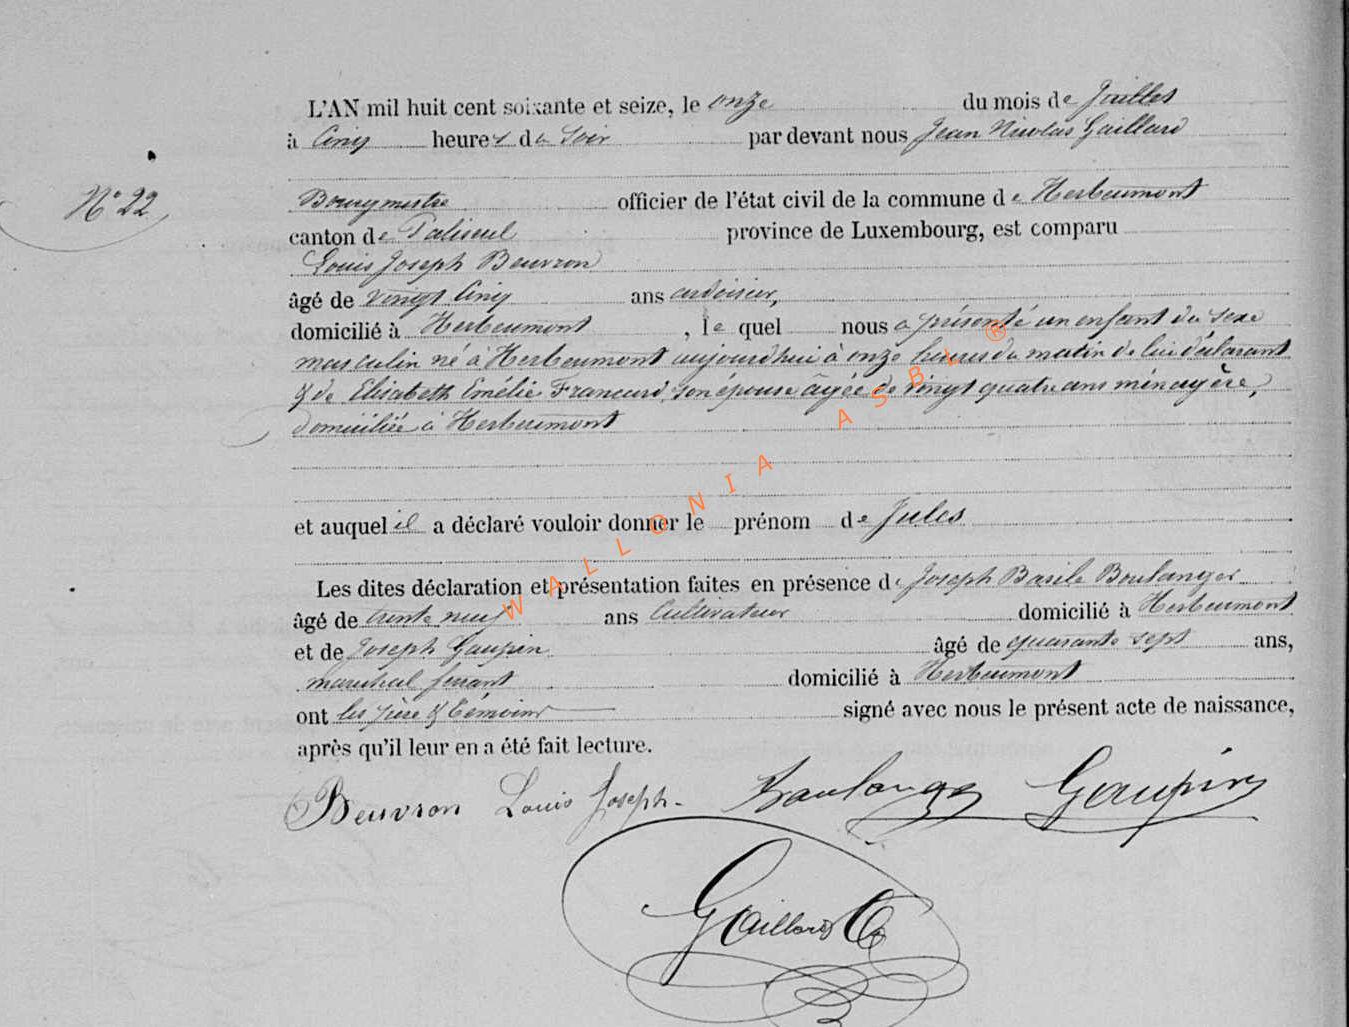 L'AN mil huit cent soixante et seize, le onze du mois de Juillet
à Cinq heures du Soir par devant nous Jean Nicolas Gaillard
N° 22
Bourgmestre officier de l'état civil de la commune de Herbeumont
canton de Paliseul province de Luxembourg, est comparu
Louis Joseph Beuvron
âgé de vingt Cinq ans ardoisier,
domicilié à Herbeumont, le quel nous a présenté un enfant du sexe
masculin né à Herbeumont aujourdhui à onze heures du matin de lui déclarant
& de Elisabeth Emélie Francard, son épouse âgée de vingt quatre ans ménagère,
domiciliée à Herbeumont
et auquel il a déclaré vouloir donner le prénom de Jules
Les dites déclaration et présentation faites en présence de Joseph Basile Boulanger
âgé de trente neuf ans Cultivateur domicilié à Herbeumont
et de Joseph Gaupin âgé de quarante sept ans,
maréchal ferrant domicilié à Herbeumont
ont les père & témoins signé avec nous le présent acte de naissance,
après qu'il leur en a été fait lecture.
Beuvron Louis Joseph. Boulanger Gaupin
Gaillard
WALLONIA ASBL ®